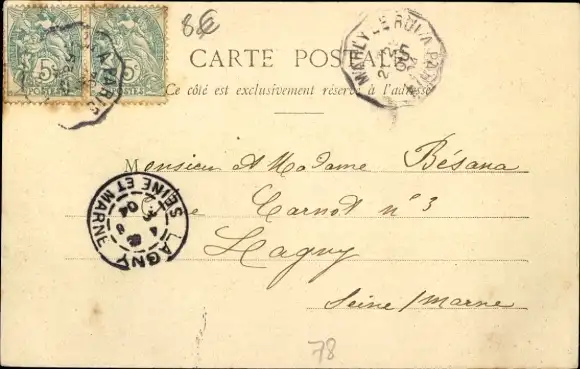 8€
5c 5c
POSTES POSTES
A PARIS
CARTE POSTALE
MARLY-LE-ROI A PARIS
Ce côté est exclusivement réservé à l'adresse
Monsieur et Madame Bésana
Carnot n° 3
Lagny
Seine/Marne
LAGNY
SEINE ET MARNE
04
78